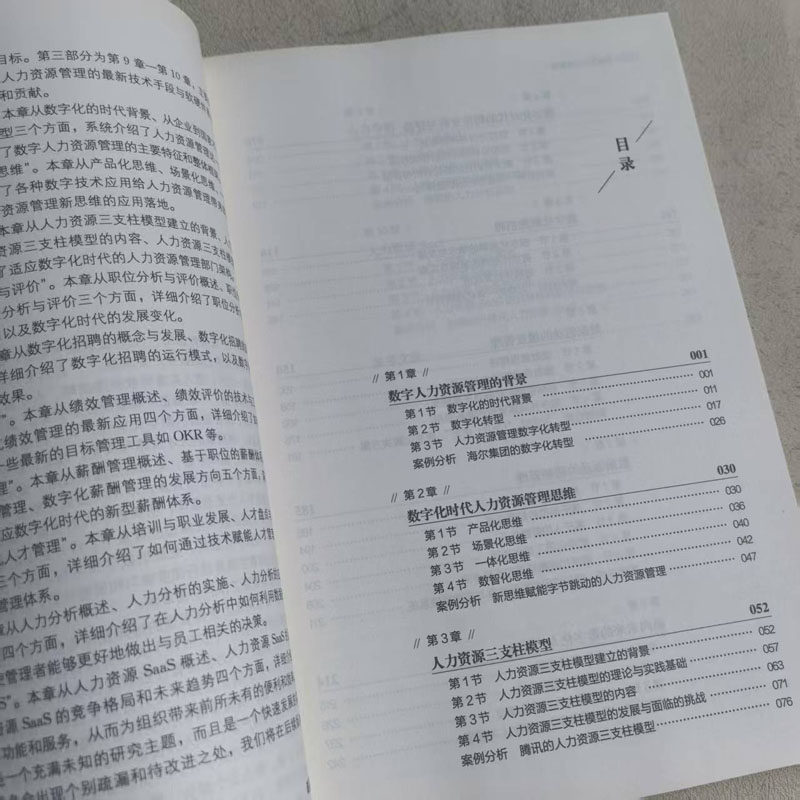 目标。第三部分为第9章—第10章，
人力资源管理的最新技术手段与软硬件
和贡献。
本章从数字化的时代背景、从企业到
型三个方面，系统介绍了人力资源管理
了数字人力资源管理的主要特征和整体
思维”。本章从产品化思维、场景化思维、
了各种数字技术应用给人力资源管理带
资源管理新思维的应用落地。
本章从人力资源三支柱模型建立的背景、
资源三支柱模型的内容、人力资源三支柱
了适应数字化时代的人力资源管理部门架构
与评价”。本章从职位分析与评价概述、职位
分析与评价三个方面，详细介绍了职位分析
以及数字化时代的发展变化。
章从数字化招聘的概念与发展、数字化招聘
详细介绍了数字化招聘的运行模式，以及数
效果。
”。本章从绩效管理概述、绩效评价的技术与
绩效管理的最新应用四个方面，详细介绍了
一些最新的目标管理工具如OKR等。
理”。本章从薪酬管理概述、基于职位的薪酬体
管理、数字化薪酬管理的发展方向五个方面，
应数字化时代的新型薪酬体系。
人才管理”。本章从培训与职业发展、人才盘点
三个方面，详细介绍了如何通过技术赋能人才管
管理体系。
章从人力分析概述、人力分析的实施、人力分析
四个方面，详细介绍了在人力分析中如何利用数
管理者能够更好地做出与员工相关的决策。
S”。本章从人力资源SaaS概述、人力资源SaaS
源SaaS的竞争格局和未来趋势四个方面，详细
功能和服务，从而为组织带来前所未有的便利和
是一个充满未知的研究主题，而且是一个快速发展
会出现个别疏漏和待改进之处，我们将在后续
目录
// 第1章 //
数字人力资源管理的背景 001
第1节 数字化的时代背景 001
第2节 数字化转型 011
第3节 人力资源管理数字化转型 017
案例分析 海尔集团的数字化转型 026
// 第2章 //
数字化时代人力资源管理思维 030
第1节 产品化思维 030
第2节 场景化思维 036
第3节 一体化思维 040
第4节 数智化思维 042
案例分析 新思维赋能字节跳动的人力资源管理 047
// 第3章 //
人力资源三支柱模型 052
第1节 人力资源三支柱模型建立的背景 052
第2节 人力资源三支柱模型的理论与实践基础 057
第3节 人力资源三支柱模型的内容 063
第4节 人力资源三支柱模型的发展与面临的挑战 071
案例分析 腾讯的人力资源三支柱模型 076